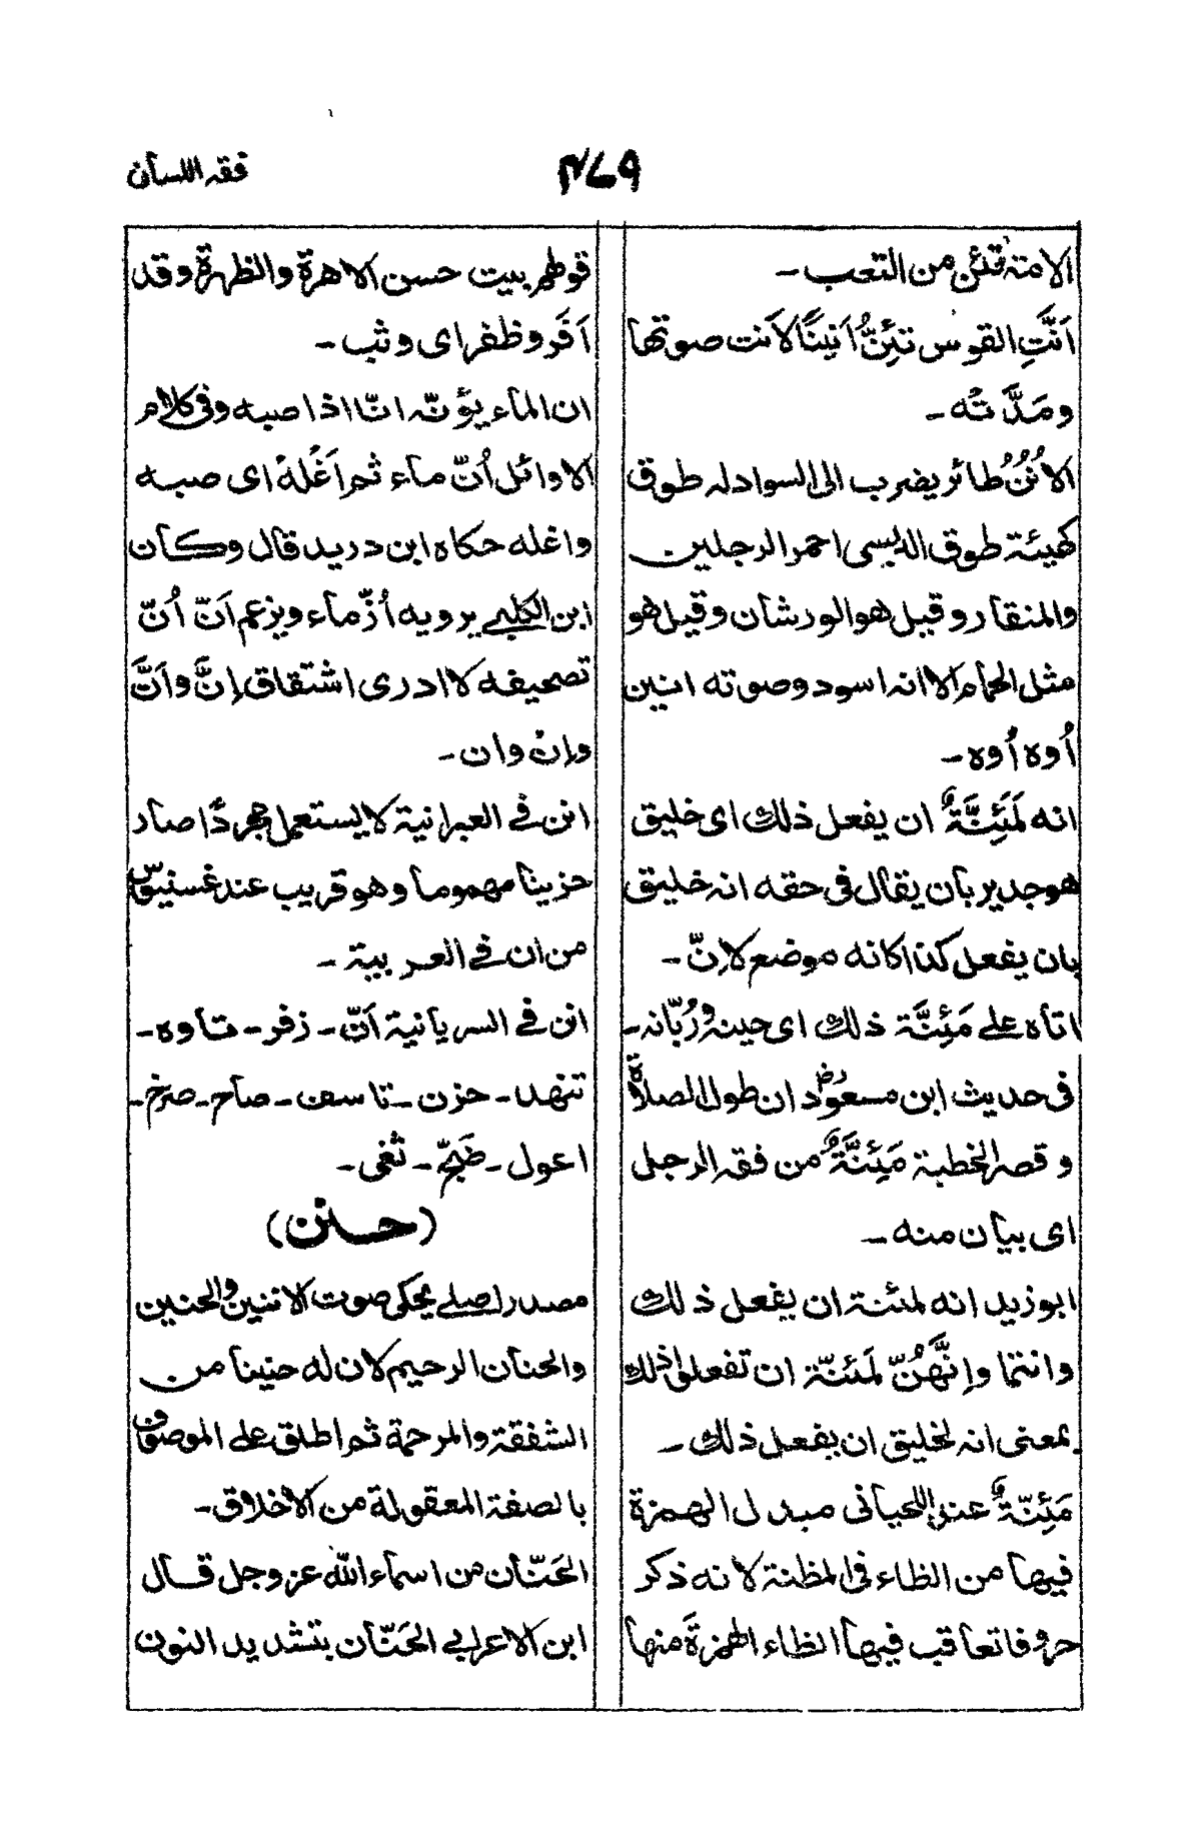 فقه اللسان
٤٧٩
الامة تئن من التعب ـ
اَنَّتِ القوس تئِنُّ اَنِينًا لاَنت صوتها
ومَدَّتْه ـ
الاُنَنُ طائر يضرب الى السواد له طوق
كهيئة طوق الدبسى احمر الرجلين
والمنقار وقيل هو الورشان وقيل هو
مثل الحمام الا انه اسود وصوته انين
اُوه اُوه ـ
انه لَمَئِنَّةٌ ان يفعل ذلك اى خليق
هو جدير بان يقال فى حقه انه خليق
بان يفعل كذا كانه موضع لاِنّ ـ
اتاه على مَئِنَّة ذلك اى حينه ورُبّانه ـ
فى حديث ابن مسعود رض ان طول الصلاة
وقصر الخطبة مَئِنَّةٌ من فقه الرجل
اى بيان منه ـ
ابو زيد انه لمئنة ان يفعل ذلك
وانتما وإنَّهُنّ لَمَئنّة ان تفعلوا ذلك
بمعنى انه لخليق ان يفعل ذلك ـ
مَئِنّةٌ عند اللحيانى مبدل الهمزة
فيها من الظاء فى المظنة لانه ذكر
حروفا تعاقب فيها الظاء الهمزةَ منها
قولهم بيت حسن الاهرة والظهرة وقد
اَفَر وظفر اى وثب ـ
ان الماء يؤنّه انّا اذا صبه وفى كلام
الاوائل اُنّ ماء ثم اَغْلِهْ اى صبه
واغله حكاه ابن دريد قال وكان
ابن الكلبى يرويه اُزّ ماء ويزعم اَنّ اُنّ
تصحيفه لا ادرى اشتقاق إنَّ واَنَّ
وإنْ وان ـ
انن فى العبرانية لا يستعمل مجردًا صار
حزينا مهموما وهو قريب عند غسنيوس
من ان فى العربية ـ
انن فى السريانية اَنّ ـ زفر ـ تاوه ـ
تنهد ـ حزن ـ تاسف ـ صاح ـ صرخ ـ
اعول ـ ضَجّ ـ ثغى ـ
(حنن)
مصدر اصلى يحكى صوت الانين والحنين
والحنان الرحيم لان له حنينا من
الشفقة والمرحمة ثم اطلق على الموصوف
بالصفة المعقولة من الاخلاق ـ
الحَنّان من اسماء الله عز وجل قال
ابن الاعرابى الحَنّان بتشديد النون